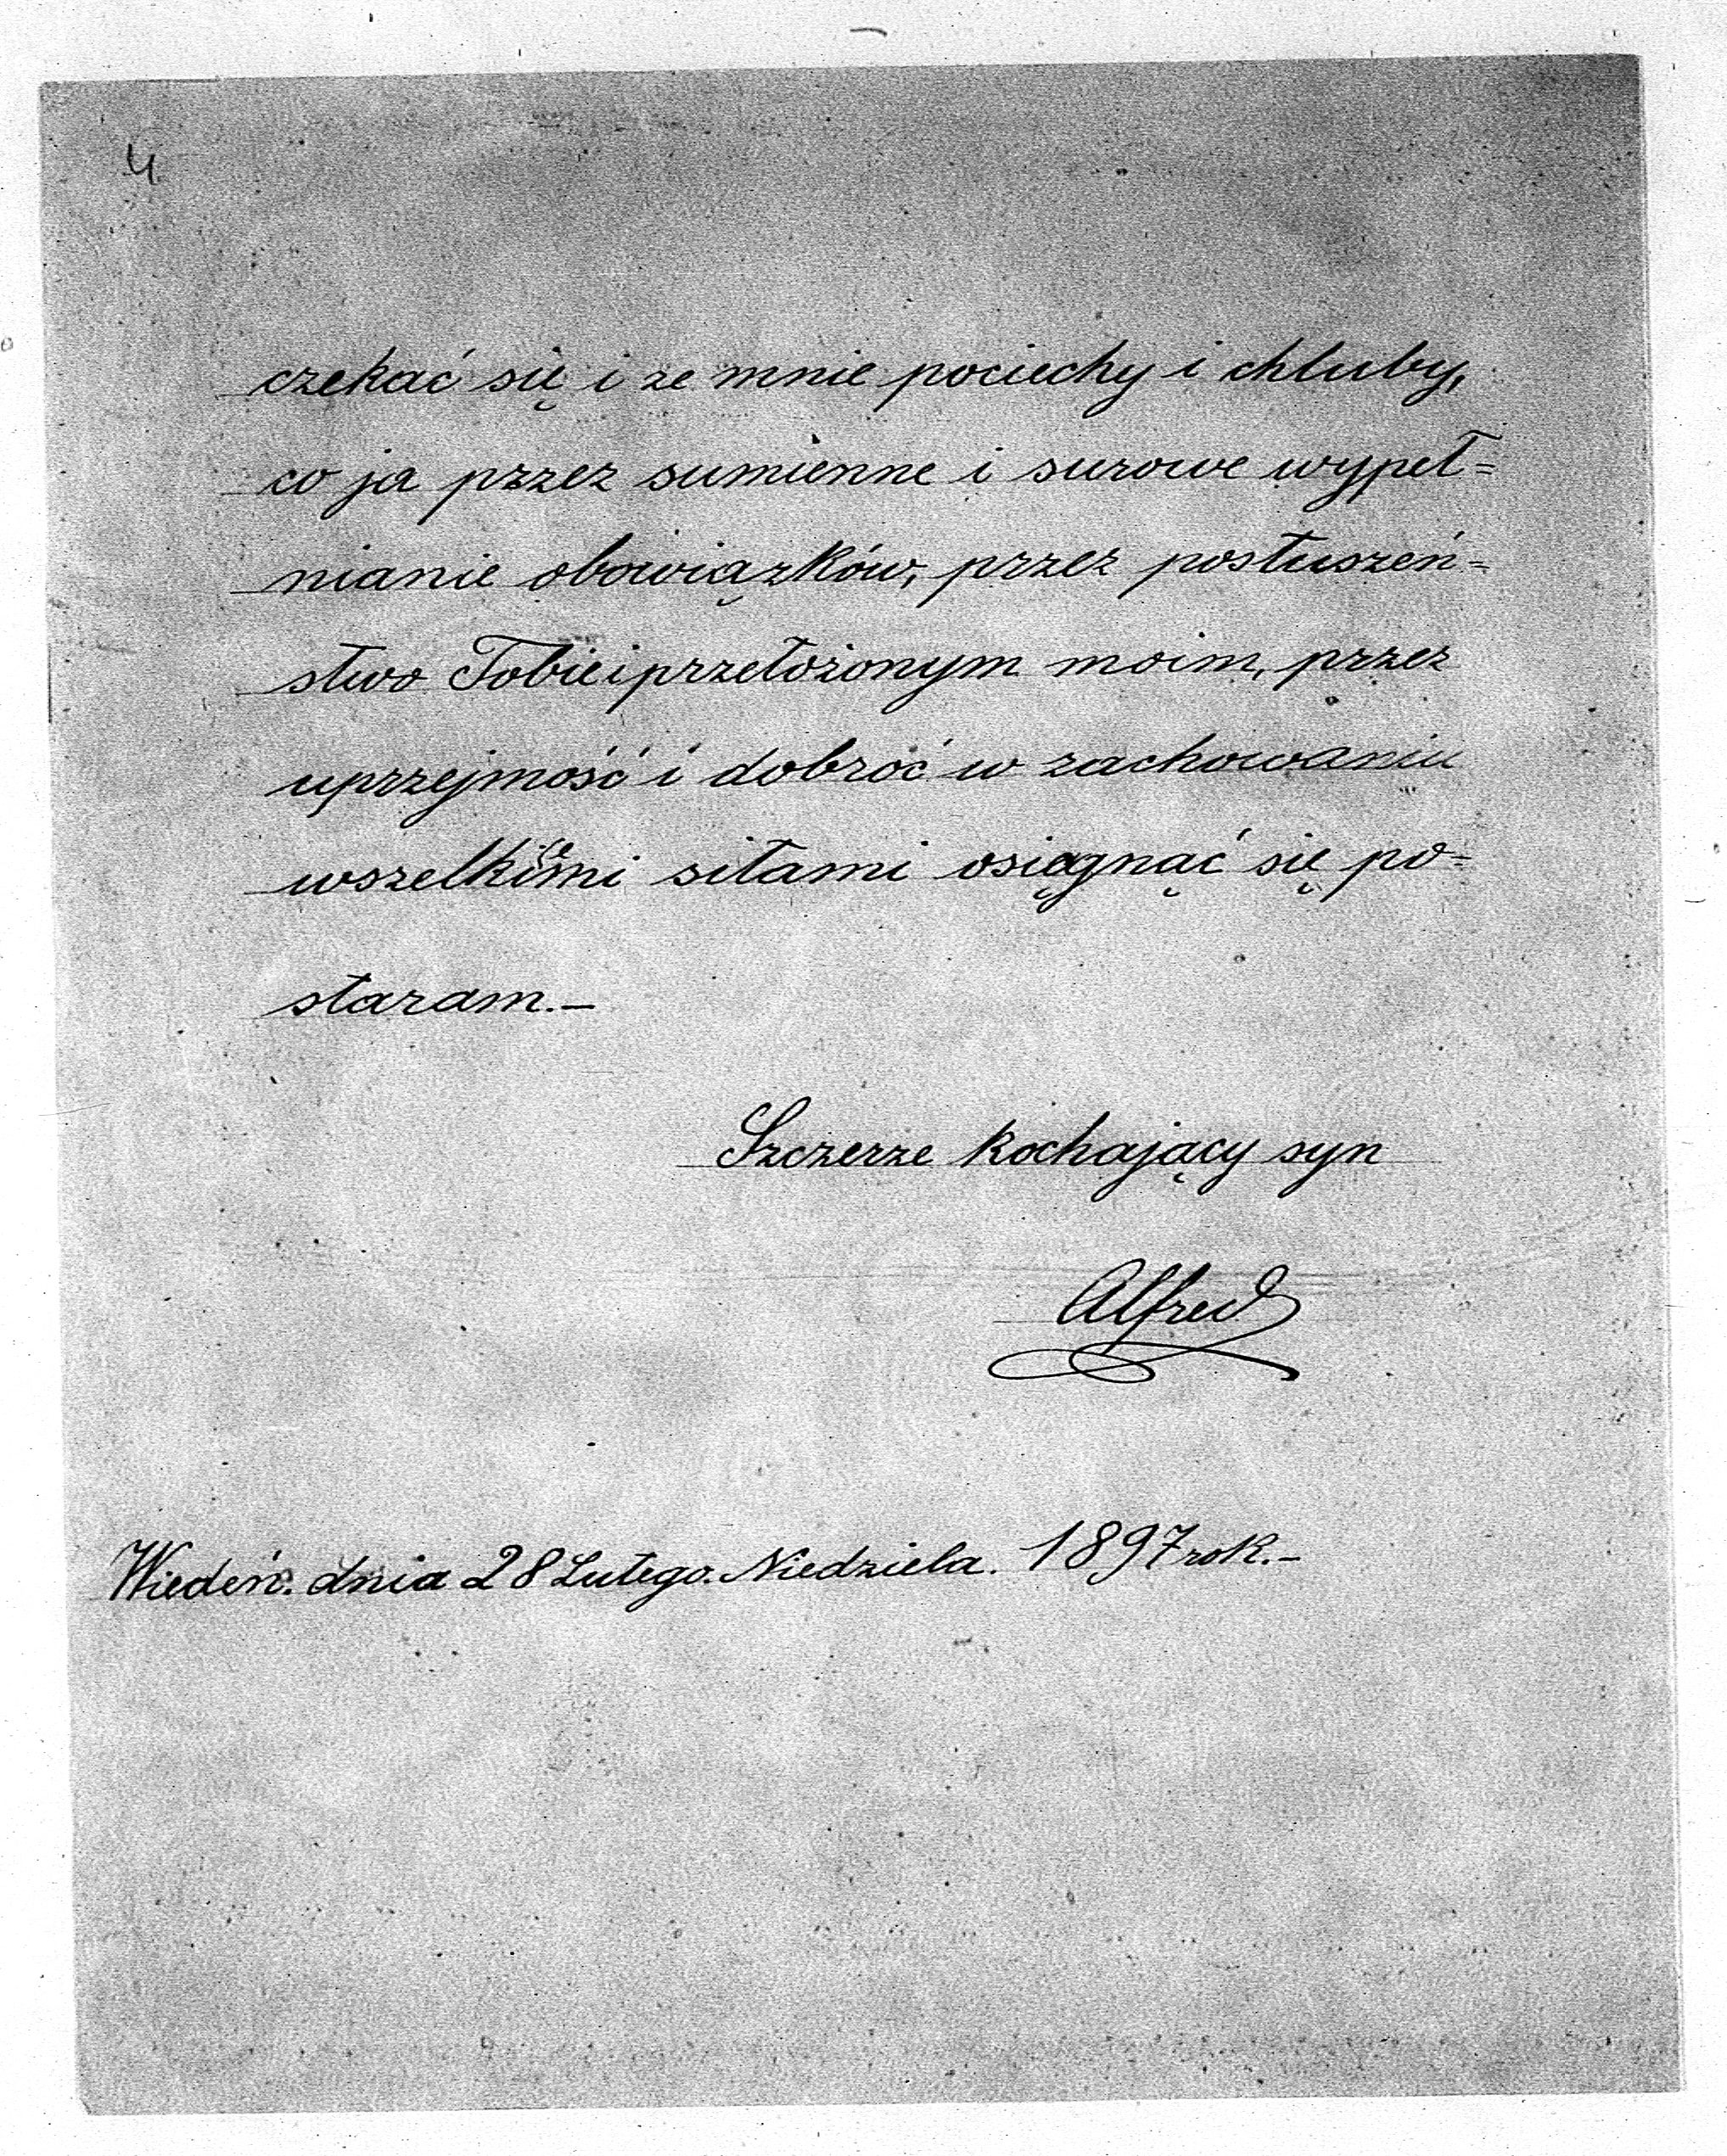 4.
czekać się i ze mnie pociechy i chluby,
co ja przez sumienne i surowe wypeł=
nianie obowiązków, przez posłuszeń=
stwo Tobie i przełożonym moim, przez
uprzejmość i dobroć w zachowaniu
wszelkiemi siłami osiągnąć się po=
staram.—
Szczerze kochający syn
Alfred
Wiedeń. dnia 28 Lutego. Niedziela. 1897 rok.—